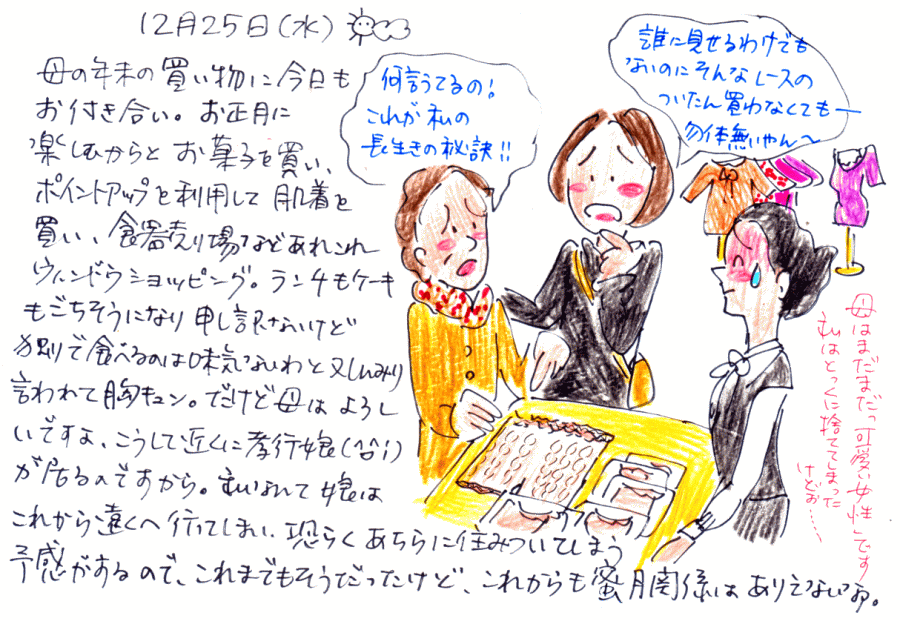 12月25日(水)
母の年末の買い物に今日も
お付き合い。お正月に
楽しむからと お菓子を買い、
ポイントアップを利用して 肌着を
買い、食器売り場などあれこれ
ウィンドウショッピング。ランチもケーキ
もごちそうになり 申し訳ないけど
独りで食べるのは味気ないわと 又しんみり
言われて胸キュン。だけど母は よろし
いですよ、こうして近くに孝行娘(台i)
が居るのですから。私なんて 娘は
これから遠くへ行ってしまい 恐らく あちらに住みついてしまう
予感がするので、これまでもそうだったけど、これからも蜜月関係はありえない
何言うてるの!
これが私の
長生きの秘訣!!
誰に見せるわけでも
ないのにそんなレースの
ついたん買わなくても―
勿体無いやん〜
母はまだまだっ可愛い女性」です
私はとっくに捨ててしまった
けどぉ……